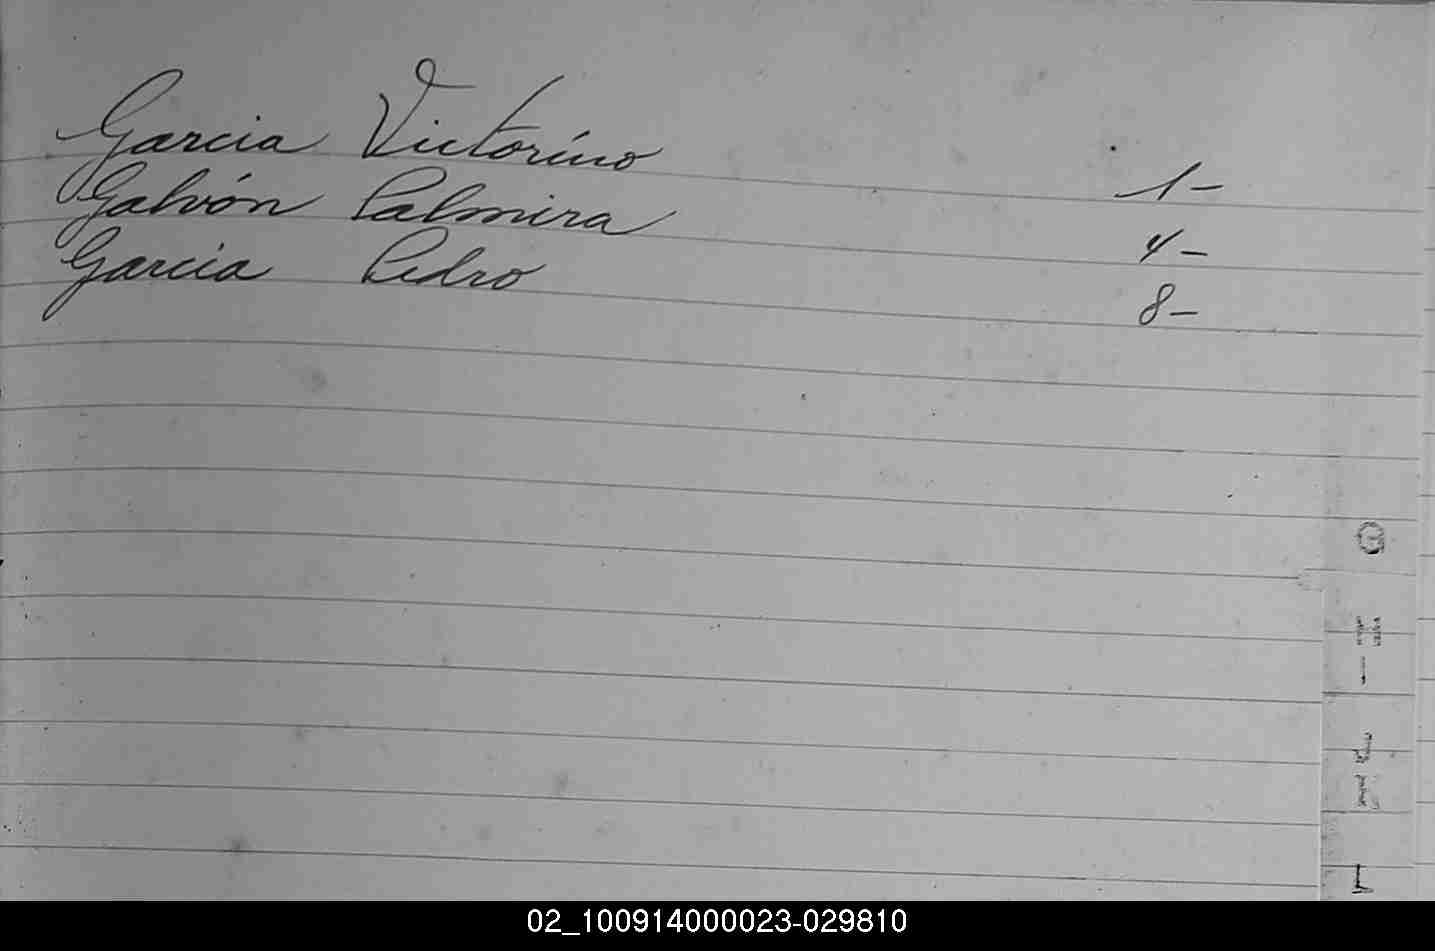 Garcia Victorino 1-
Galvón Palmira 4-
Garcia Pedro 8-
02_100914000023-029810